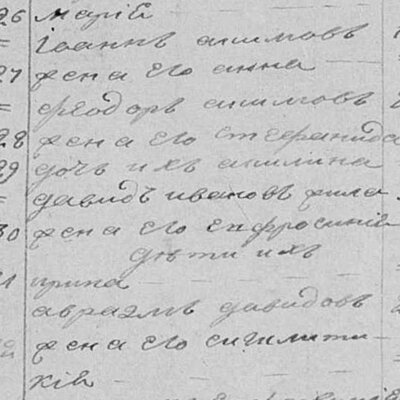 26 марiѣ
= iоаннъ акимовъ
27 жена его анна
= ѳеодоръ акимовъ
28 жена его стефанида
29 дочь ихъ акилина
= давидъ ивановъ
30 жена его ефросинiя
дѣти ихъ
ирина
авраамъ давидовъ
жена его
кiя